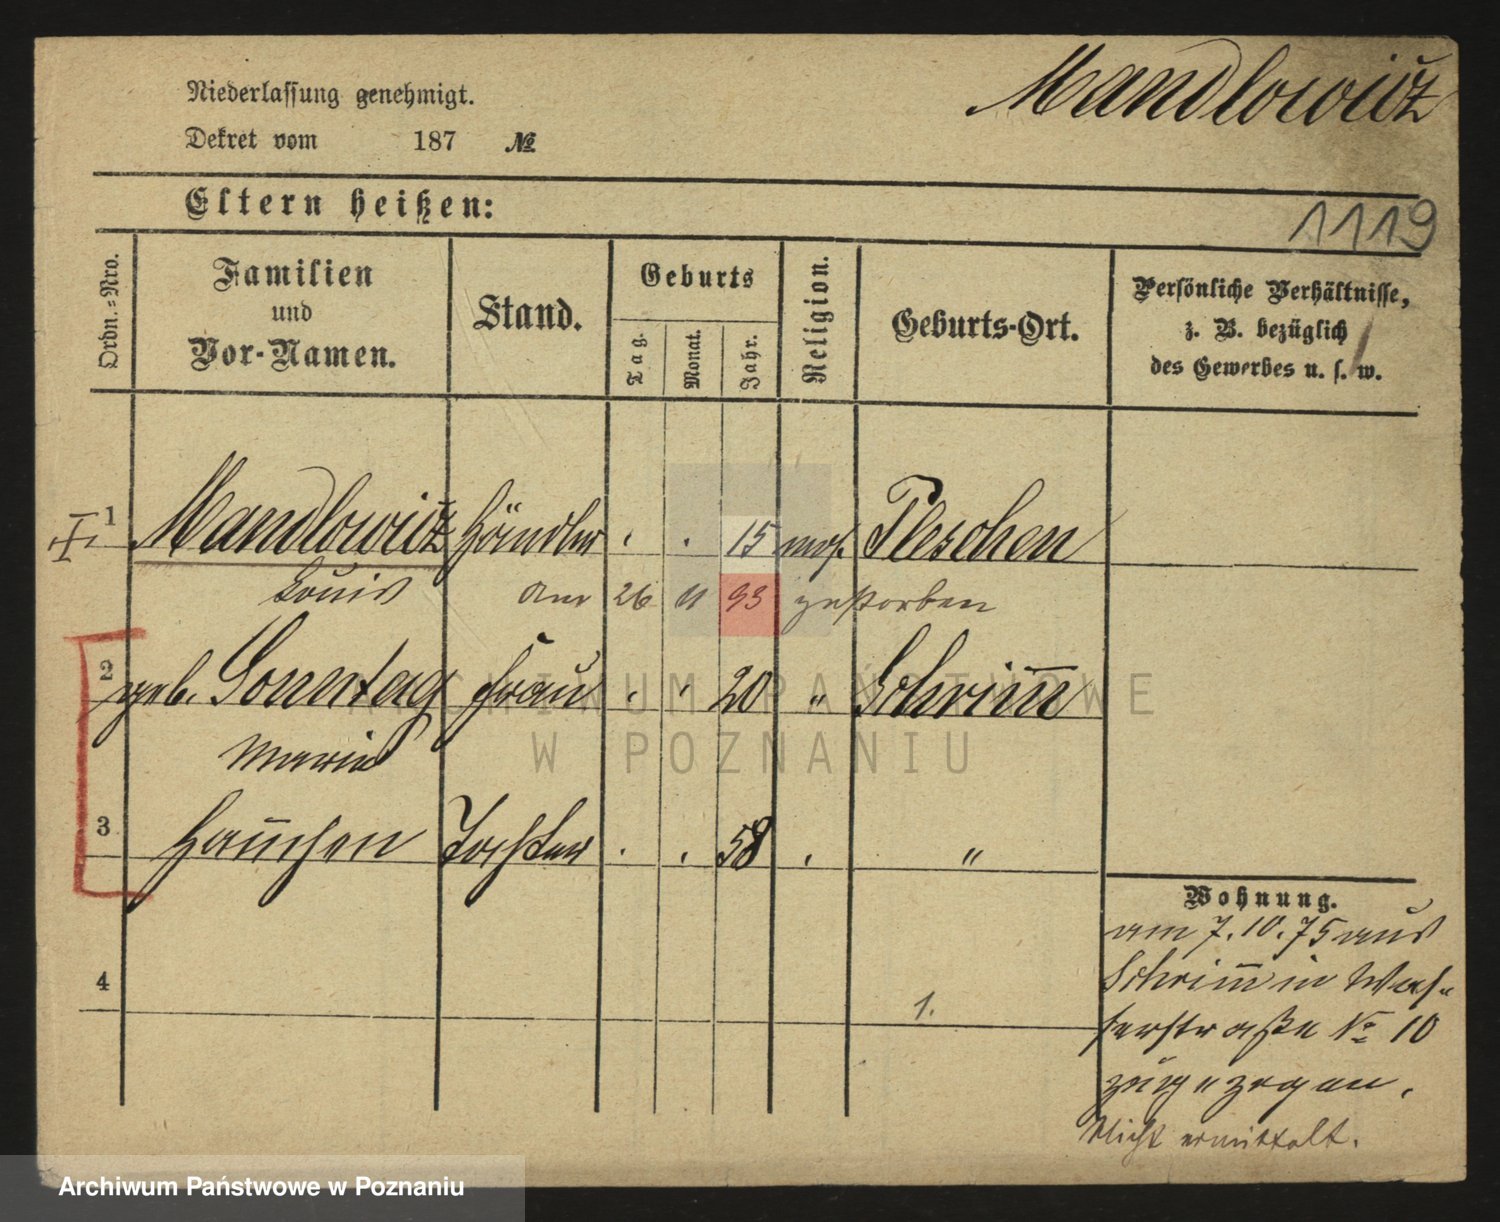 Niederlassung genehmigt.
Mandlowicz
Dekret vom 187 №
Eltern heißen:
1119
Ordn.-Nro.
Familien
und
Vor-Namen.
Stand.
Geburts
Tag.
Monat.
Jahr.
Religion.
Geburts-Ort.
Persönliche Verhältnisse,
z. B. bezüglich
des Gewerbes u. s. w.
1 Mandlowicz Händler 15 mos. Pleschen
Louis am 26 11 93 gestorben
2 geb. Sonntag Frau 20 " Schrim̅
Marie
3 Han̅chen Tochter 58 "
Wohnung.
am 7.10.75 aus
Schrim̅ in Was-
serstraße № 10
zugezogen.
Nicht ermittelt.
4
1.
ARCHIWUM PAŃSTWOWE
W POZNANIU
Archiwum Państwowe w Poznaniu